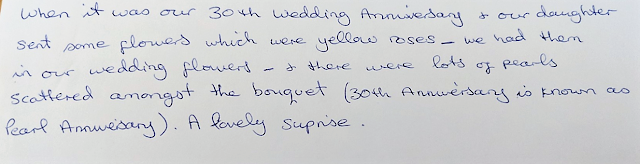 When it was our 30th Wedding Anniversary & our daughter
sent some flowers which were yellow roses – we had them
in our wedding flowers – & there were lots of pearls
scattered amongst the bouquet (30th Anniversary is known as
Pearl Anniversary). A lovely suprise.